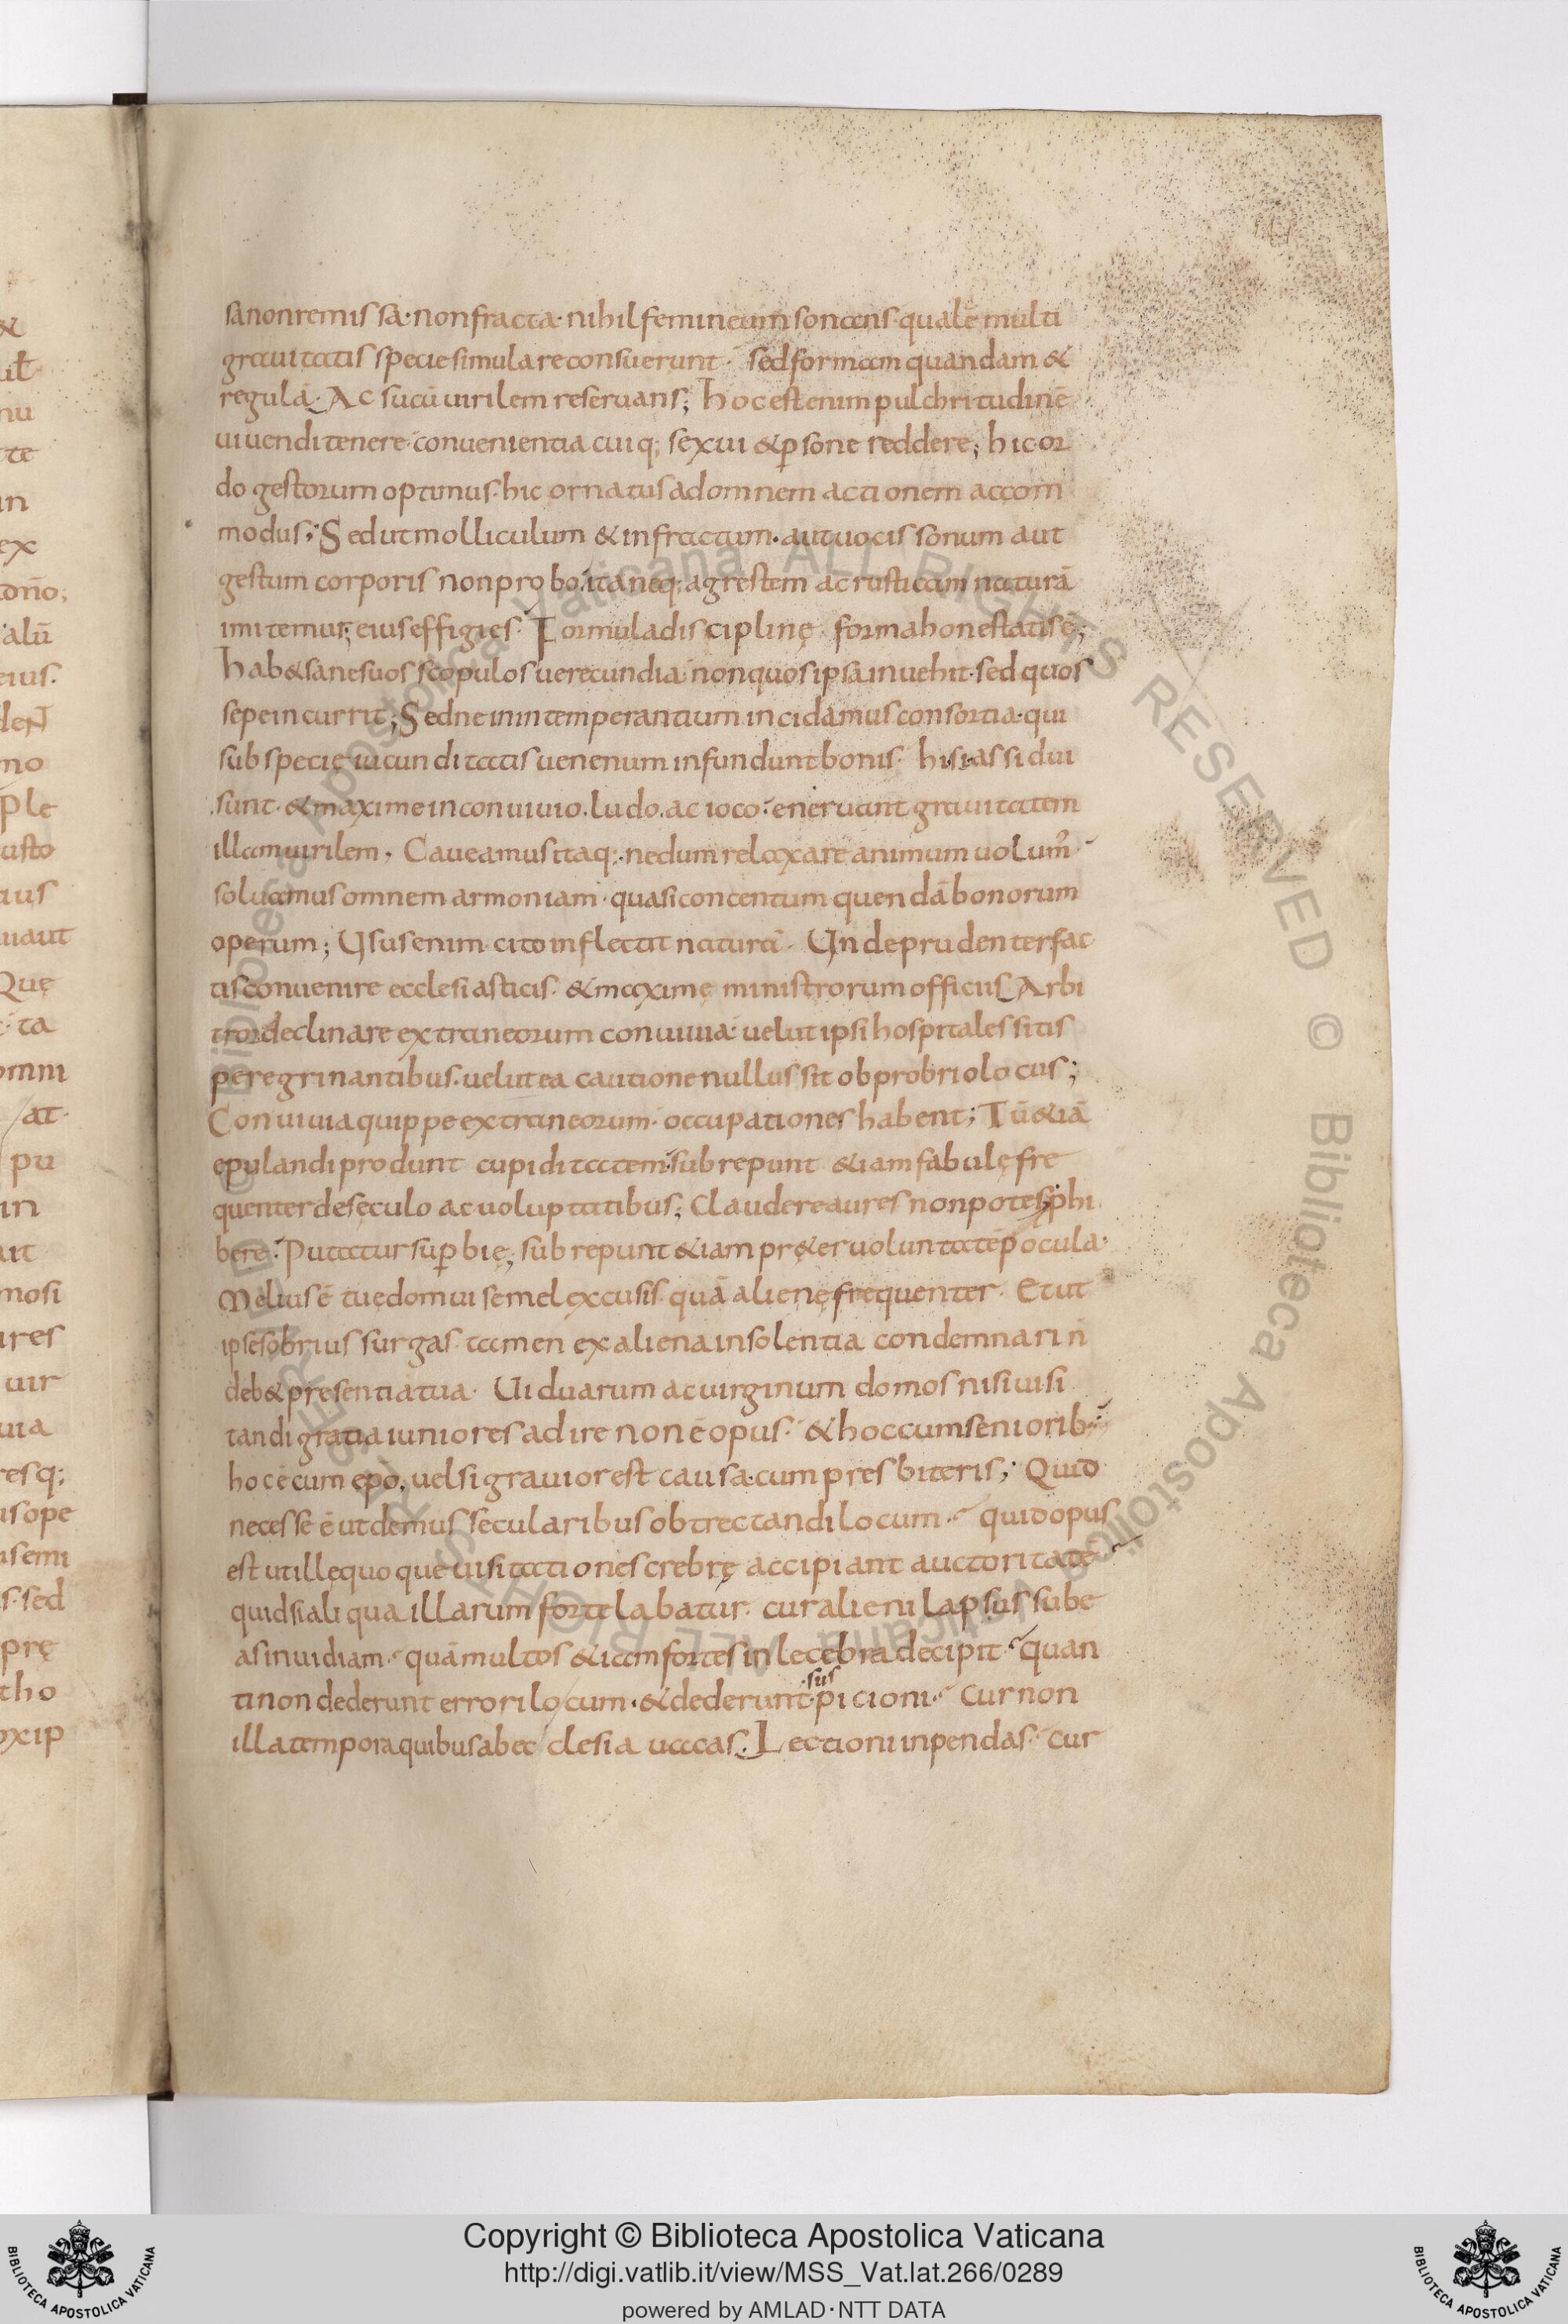 sanonremissa·nonfracta·nihilfemineumsonans·qualē multi
grauitatis speciesimulareconsuerunt· sedformam quandam &
regulā·Ac sucū uirilem reseruans; hocestenimpulchritudinē
uiuenditenere·conuenientia cuiq; sexui &ꝑsone reddere; hicor
do gestorum optimus·hic ornatusadomnem actionem accom
modus; Sedutmolliculum &infractum·autuocis sonum aut
gestum corporis nonprobo·itaneq; agrestem acrusticam naturā
imitemur; eiuseffigies· Formuladisciplinę formahonestatisē;
hab&sanesuos scopulos uerecundia·nonquosipsainuehit·sed quos
sepeincurrit; Sedne inintemperantium incidamusconsortia·qui
subspecie iucunditatis uenenum infunduntbonis· hisiassidui
sunt·&maxime inconuiuio·ludo·ac ioco·eneruant grauitatem
illamuirilem· Caueamusitaq;·nedumrelaxare animum uolum᷒
soluamusomnem armoniam·quasiconcentum quendābonorum
operum; Ususenim cito inflectit naturā· Undeprudenterfac
tisconuenire ecclesiasticis·&maxime ministrorumofficiis Arbi
trordeclinare extraneorum conuiuia·uelut ipsi hospitales sitis
peregrinantibus·uelutea cautione nullus sit obprobriolocus;
Conuiuiaquippe extraneorum·occupationes habent; Tū&iā
epulandiprodunt cupiditatem·subrepunt &iamfabulęfre
quenterdeseculo acuoluptatibus; Claudereaures nonpotes;phi
bere·Putatur suꝑbię; subrepunt &iam pręteruoluntatēpocula·
Meliusē tuędomui semel excusis·quā alienęfrequenter· Etut
ipsesobrius surgas·tamen exalienainsolentia condemnari n̄
deb&presentiatua· Uiduarum acuirginum domos nisiuisi
tandi gratia iuniores adire nonēopus·&hoccumseniorib·
hocēcum epo, uelsigrauiorest causa·cumpresbiteris; Quid
necesseēutdemus secularibusobtrectandi locum· quidopus
est utillequoque uisitationescrebrę accipiant auctoritatē
quidsialiqua illarum fortelabatur·cur alieni lapsus sube
asinuidiam· quāmultos &iamfortes inlecebra decipit· quan
tinon dederunt errorilocum·&dederunt·picioni· curnon
sus
illatemporaquibusabecclesia uacas· Lectioniinpendas· cur
ple
usto
in
ex
no
pu
sed
prę
tho
Que
ures
uir
resq;
mosi
eius·
Copyright © Biblioteca Apostolica Vaticana
http://digi.vatlib.it/view/MSS_Vat.lat.266/0289
powered by AMLAD·NTT DATA
BIBLIOTECA APOSTOLICA VATICANA
BIBLIOTECA APOSTOLICA VATICANA
© Biblioteca Apostolica Vaticana ALL RIGHTS RESERVED